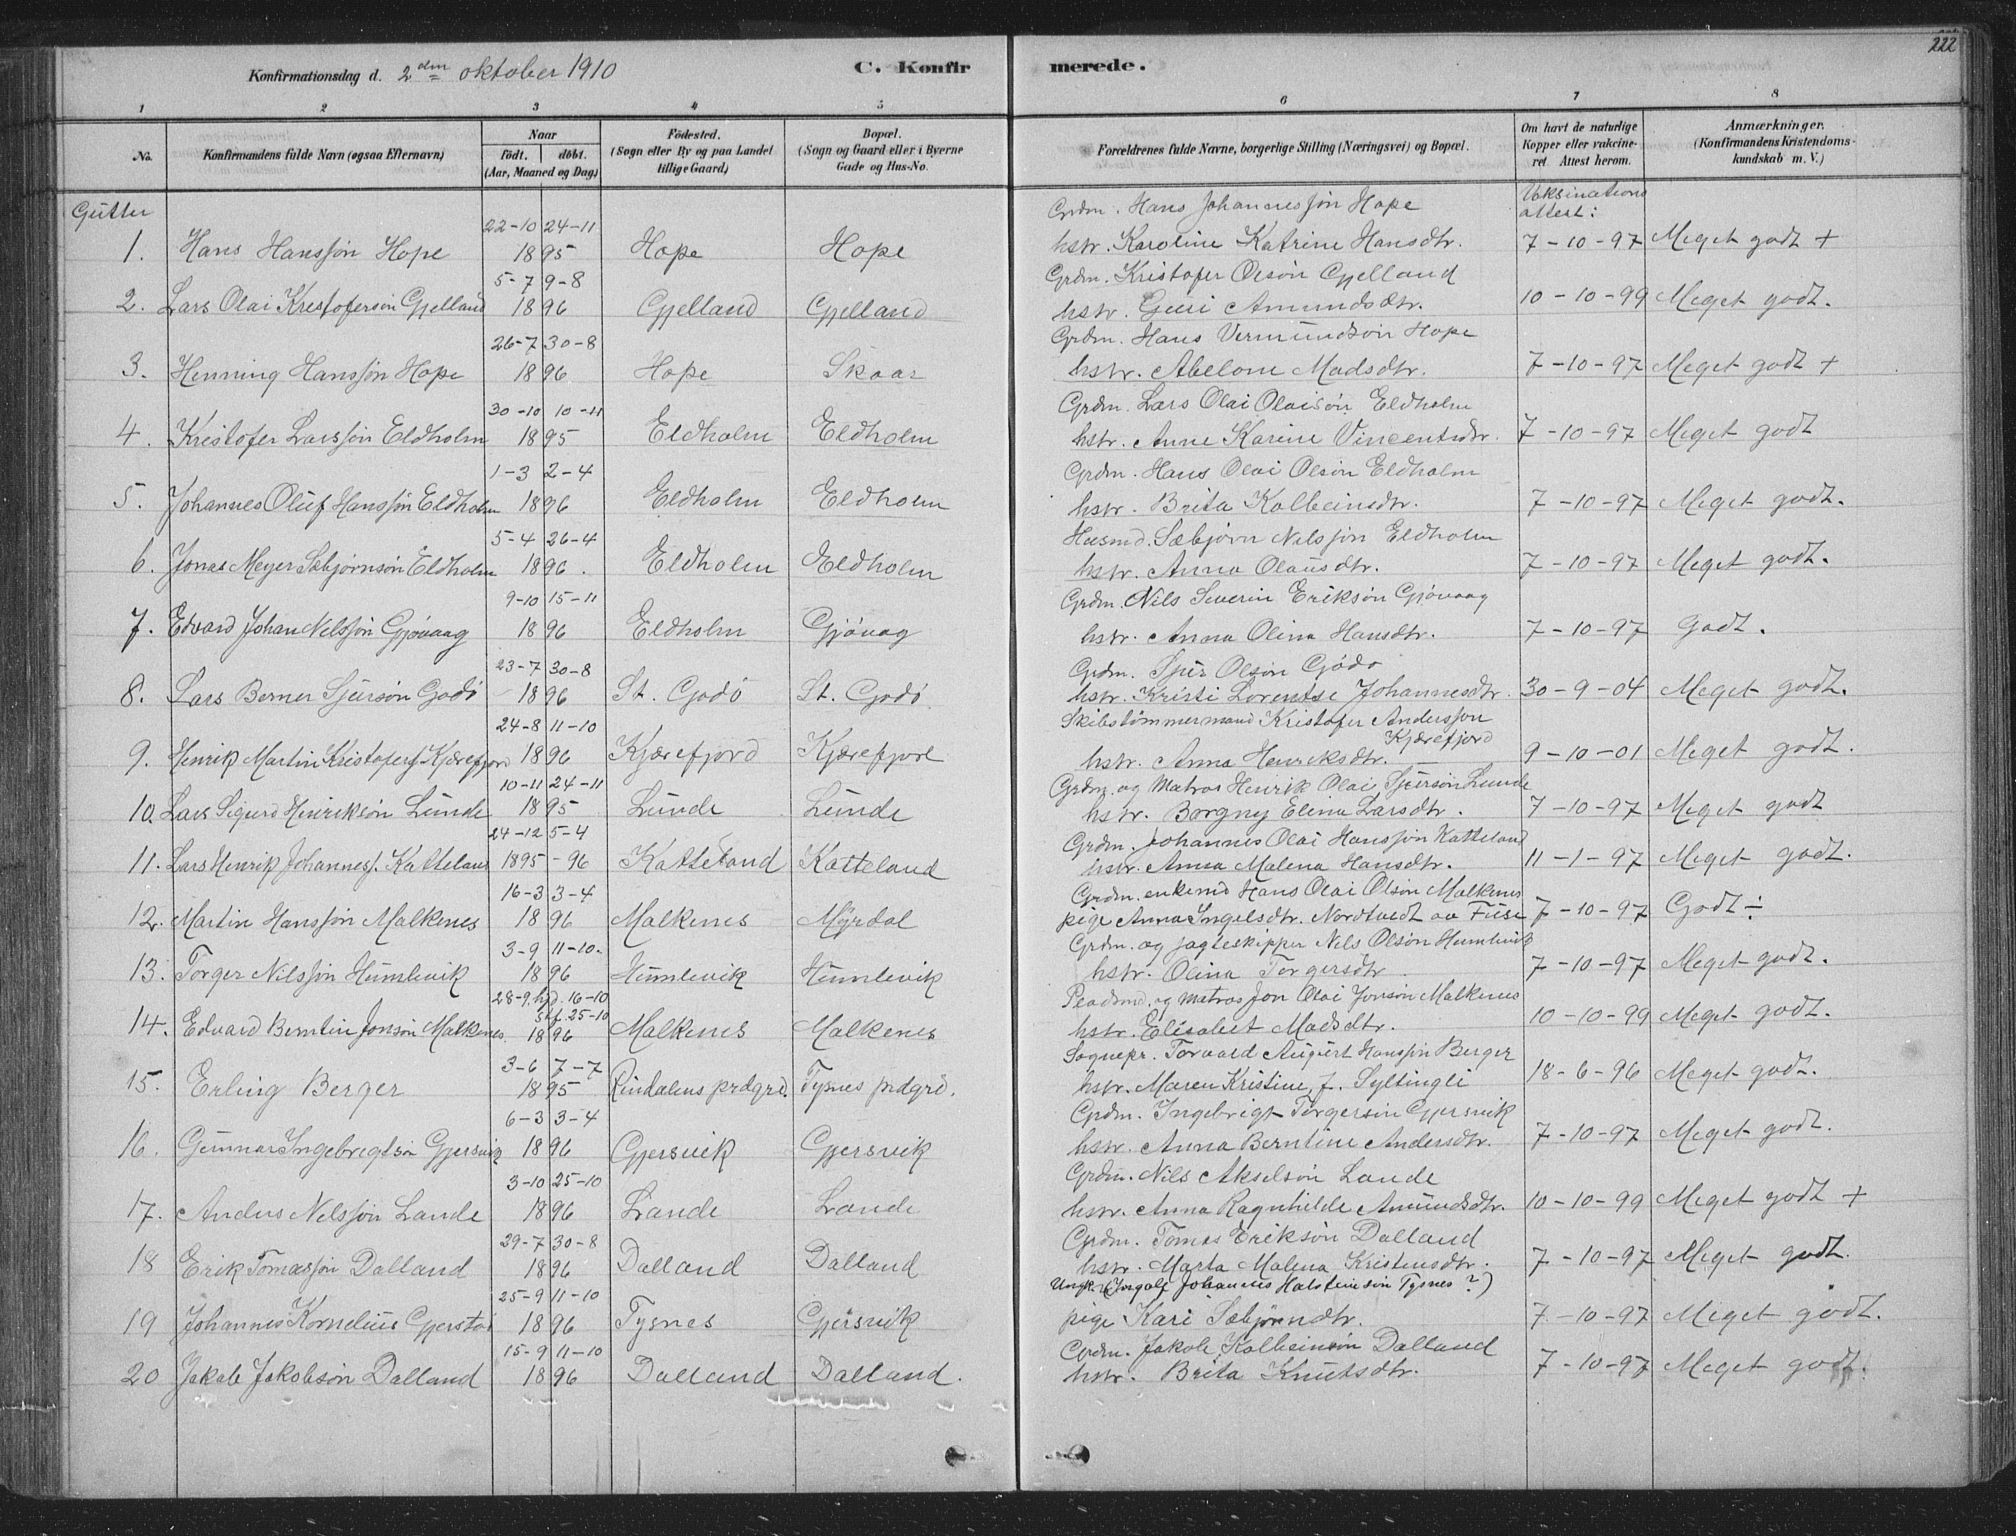 222
Konfirmationsdag d. 2den oktober 1910
C. Konfirmerede.
1 2 3 4 5 6 7 8
No. Konfirmandens fulde Navn (ogsaa Efternavn)
Naar født. døbt. (Aar, Maaned og Dag)
Fødested. (Sogn eller By og paa Landet tillige Gaard)
Bopæl. (Sogn og Gaard eller i Byerne Gade og Hus-No.
Forældrenes fulde Navne, borgerlige Stilling (Næringsvei) og Bopæl.
Om havt de naturlige Kopper eller vakcineret. Attest herom.
Anmærkninger. (Konfirmandens Kristendomskundskab m. V.)
Gutter
Vaksinations attest:
22-10 24-11 Grdm. Hans Johannessøn Hope
1. Hans Hanssøn Hope 1895 Hope Hope hstr. Karoline Katrine Hansdtr. 7-10-97 Meget godt +
5-7 9-8 Grdm. Kristofer Olsøn Gjelland
2. Lars Olai Kristofersøn Gjelland 1896 Gjelland Gjelland hstr. Guri Amundsdtr. 10-10-99 Meget godt.
26-7 30-8 Grdm. Hans Vermundsøn Hope
3. Henning Hanssøn Hope 1896 Hope Skaar hstr. Abelone Madsdtr. 7-10-97 Meget godt +
30-10 10-11 Grdm. Lars Olai Olaisøn Eldholm
4. Kristofer Larssøn Eldholm 1895 Eldholm Eldholm hstr. Anne Karine Vincentsdtr. 7-10-97 Meget godt
1-3 2-4 Grdm. Hans Olai Olsøn Eldholm
5. Johannes Oluf Hanssøn Eldholm 1896 Eldholm Eldholm hstr. Brita Kolbeinsdtr. 7-10-97 Meget godt.
5-4 26-4 Husmd. Sæbjørn Nilssøn Eldholm
6. Jonas Meyer Sæbjørnsøn Eldholm 1896. Eldholm Eldholm hstr. Anna Olausdtr. 7-10-97 Meget godt.
9-10 15-11 Grdm. Nils Severin Eriksøn Gjøvaag
7. Edvard Johan Nilssøn Gjøvaag 1896 Eldholm Gjøvag hstr. Anna Olina Hansdtr. 7-10-97 Godt.
23-7 30-8 Grdm. Sjur Olsøn Godø
8. Lars Berner Sjursøn Godø 1896 St. Godø St. Godø. hstr. Kristi Lorentse Johannesdtr. 30-9-04 Meget godt.
24-8 11-10 Skibstømmermand Kristofer Anderssøn Kjærefjord
9. Henrik Martin Kristofers. Kjærefjord 1896 Kjærefjord Kjærefjord hstr. Anna Henriksdtr. 9-10-01 Meget godt.
10-11 24-11 Grdm. og Matros Henrik Olai Sjursøn Lunde
10. Lars Sigurd Henriksøn Lunde 1895 Lunde Lunde hstr. Borgny Elena Larsdtr. 7-10-97 Meget godt
24-12 5-4 Grdm. Johannes Olai Hanssøn Katteland
11. Lars Henrik Johanness. Katteland 1895-96 Katteland Katteland hstr. Anna Malena Hansdtr. 11-1-97 Meget godt.
16-3 3-4 Grdm. enkemd Hans Olai Olsøn Malkenes
12. Martin Hanssøn Malkenes 1896 Malkenes Myrdal pige Anna Ingelsdtr. Nordtvedt av Fuse 7-10-97 Godt ÷
3-9 11-10. Grdm. og jagteskipper Nils Olsøn Humlevik
13. Torger Nilssøn Humlevik 1896 Humlevik Humlevik hstr. Olina Torgersdtr. 7-10-97 Meget godt.
28-9. hjd. 16-10 stf. 25-10 Pladsmd. og matros Jon Olai Jonsøn Malkenes
14. Edvard Berntin Jonsøn Malkenes. 1896 Malkenes Malkenes hstr. Elisabet Madsdtr. 10-10-99 Meget godt.
3-6 7-7 Sognepr. Torvald August Hanssøn Berger
15. Erling Berger 1895 Rindalens prdgrd. Tysnes prdgrd. hstr. Maren Kristine f. Syltingli 18-6-96 Meget godt.
6-3 3-4 Grdm. Ingebrigt Torgersøn Gjersvik
16. Gunnar Ingebrigtsøn Gjersvik 1896 Gjersvik Gjersvik hstr. Anna Berntine Andersdtr. 7-10-97 Meget godt.
3-10 25-10 Grdm. Nils Akselsøn Lande
17. Anders Nilssøn Lande 1896 Lande Lande hstr. Anna Ragnhilde Amundsdtr. 10-10-99 Meget godt +
29-7 30-8 Grdm. Tomas Eriksøn Dalland
18 Erik Tomassøn Dalland 1896 Dalland Dalland hstr. Marta Malena Kristensdtr. 7-10-97 Meget godt.
25-9 11-10 Ungk. (Ingolf Johannes Halsteinsøn Tysnes?)
19 Johannes Kornelius Gjerstad 1896 Tysnes Gjersvik pige Kari Sæbjørndtr. 7-10-97 Meget godt.
15-9 11-10 Grdm. Jakob Kolbeinsøn Dalland
20 Jakob Jakobsøn Dalland 1896 Dalland Dalland. hstr. Brita Knutsdtr. 7-10-97 Meget godt.